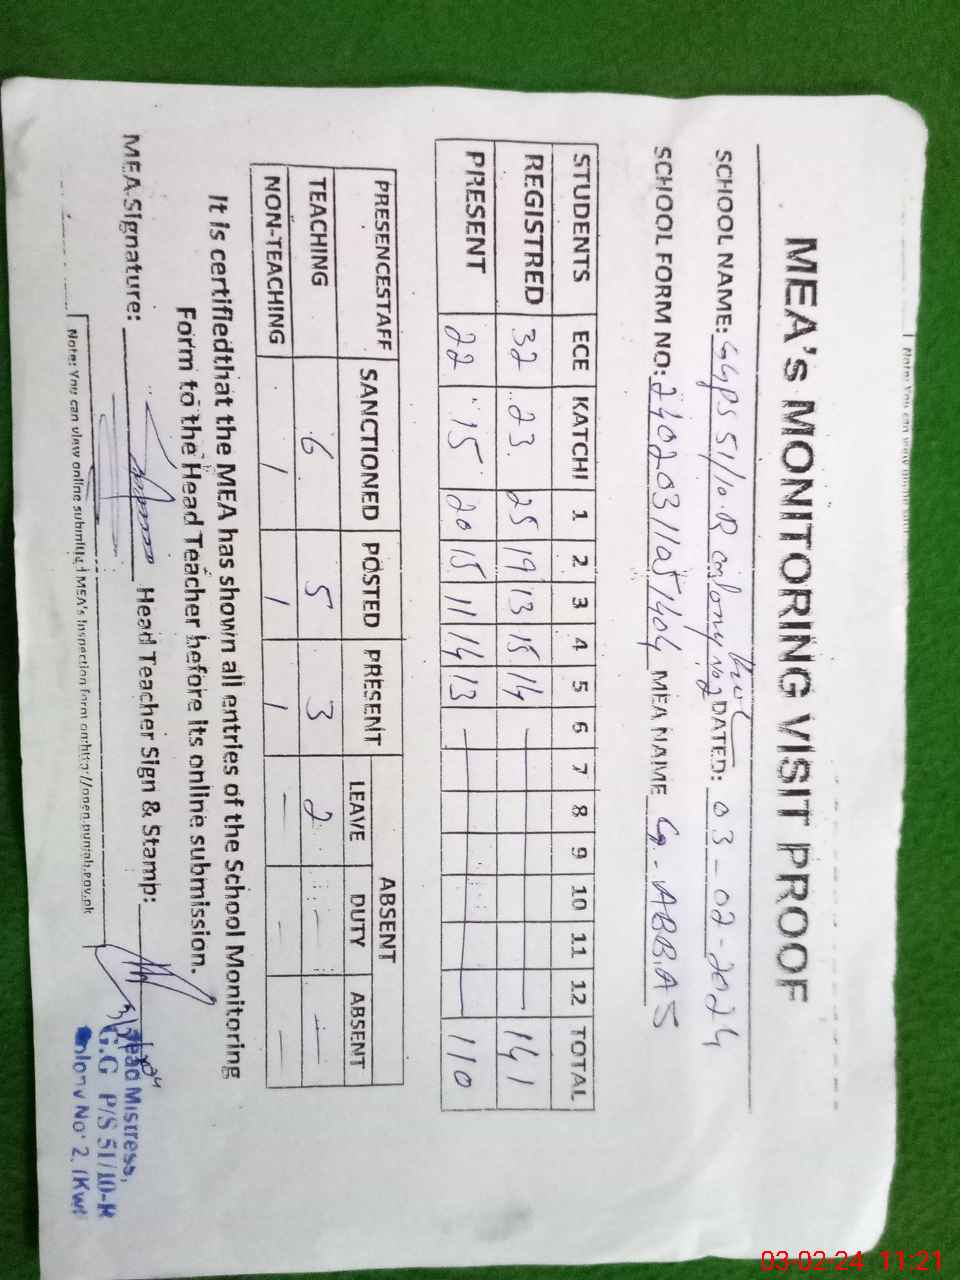 MEA's MONITORING VISIT PROOF
SCHOOL NAME: GGPS 51/10.R colony No2 DATED: 03-02-2024
SCHOOL FORM NO: MEA NAME G. ABBAS
STUDENTS ECE KATCHI 1 2 3 4 5 6 7 8 9 10 11 12 TOTAL
REGISTRED 32 23 25 19 13 15 14 — 141
PRESENT 22 15 20 15 11 14 13 — 110
PRESENCESTAFF SANCTIONED POSTED PRESENT ABSENT
LEAVE DUTY ABSENT
TEACHING 6 5 3 2 — —
NON-TEACHING 1 1 1 — — —
It is certifiedthat the MEA has shown all entries of the School Monitoring
Form to the Head Teacher before its online submission.
MEA.Signature: Head Teacher Sign & Stamp:
Head Mistress,
G.G P/S 51/10-R
Colony No. 2. (Kwl
Note: You can view online MEA's inspection form on:http://open.punjab.gov.pk
03-02-24 11:21